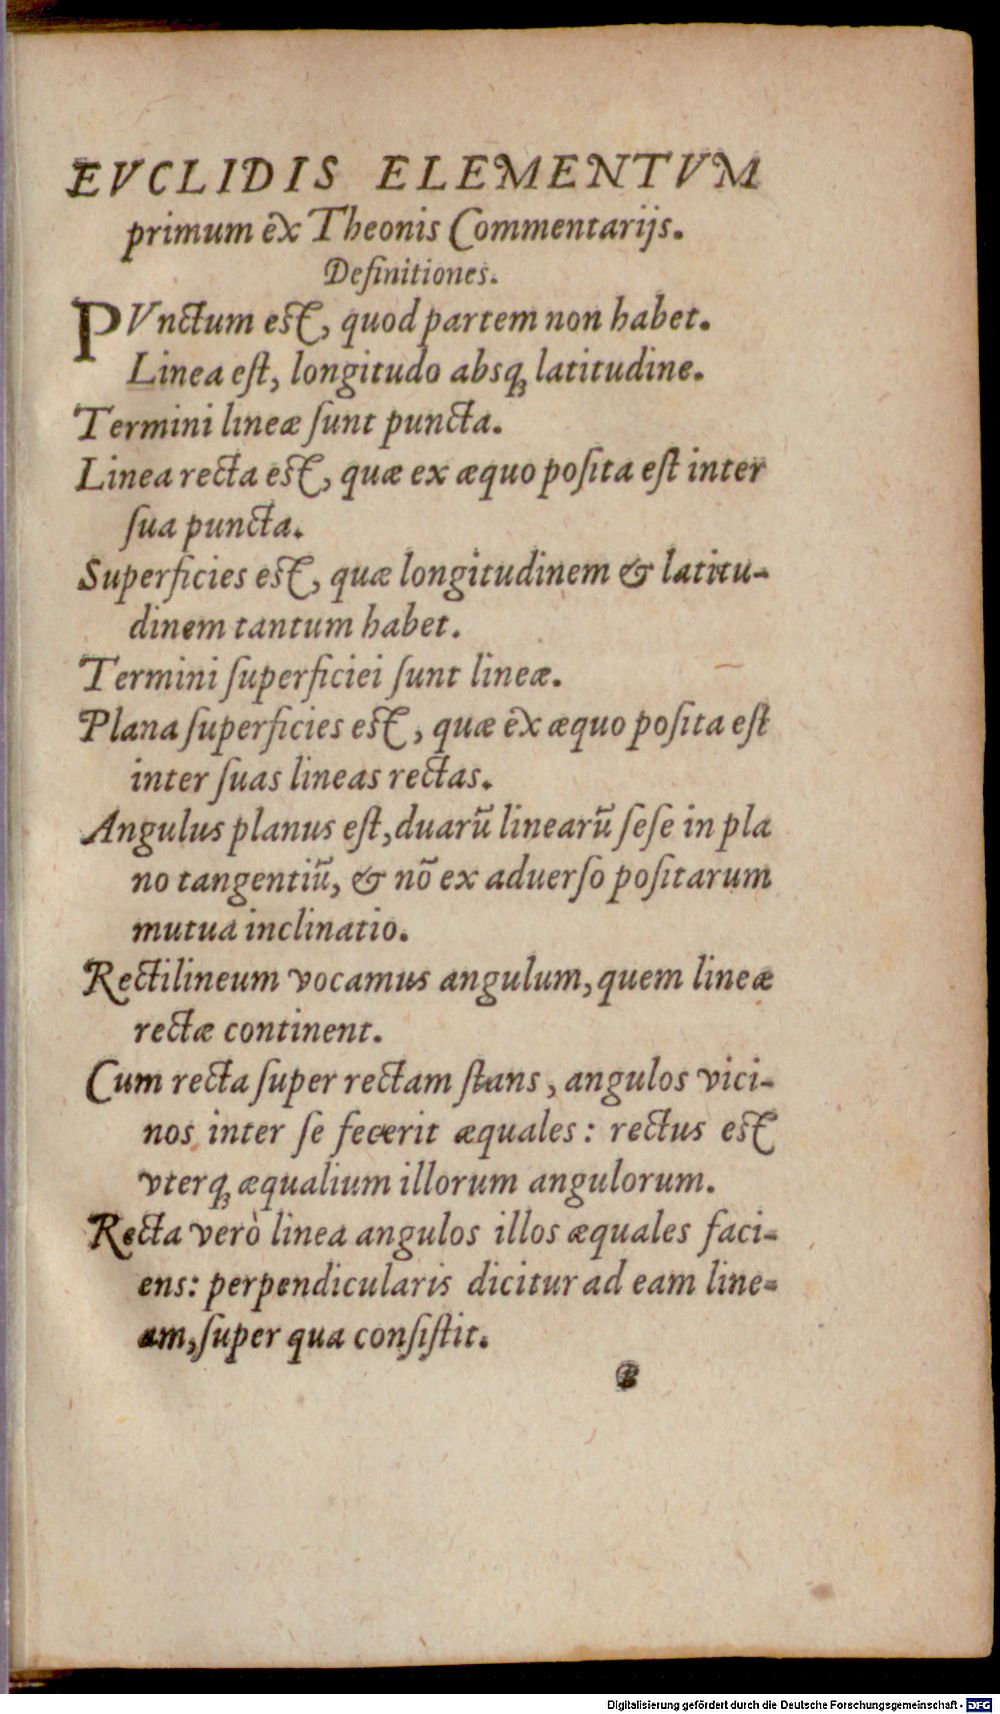 EVCLIDIS ELEMENTVM
primum ex Theonis Commentarijs.
Definitiones.
PVnctum est, quod partem non habet.
Linea eſt, longitudo absqꝫ latitudine.
Termini lineæ ſunt puncta.
Linea recta est, quæ ex æquo poſita eſt inter
ſua puncta.
Superficies est, quæ longitudinem & latitu-
dinem tantum habet.
Termini ſuperficiei ſunt lineæ.
Plana ſuperficies est, quæ ex æquo poſita eſt
inter ſuas lineas rectas.
Angulus planus eſt, duarũ linearũ ſeſe in pla
no tangentiũ, & nõ ex aduerſo poſitarum
mutua inclinatio.
Rectilineum vocamus angulum, quem lineæ
rectæ continent.
Cum recta ſuper rectam ſtans, angulos vici-
nos inter ſe fecerit æquales: rectus est
vterqꝫ æqualium illorum angulorum.
Recta verò linea angulos illos æquales faci-
ens: perpendicularis dicitur ad eam line-
am, ſuper qua conſiſtit.
B
Digitalisierung gefördert durch die Deutsche Forschungsgemeinschaft - DFG